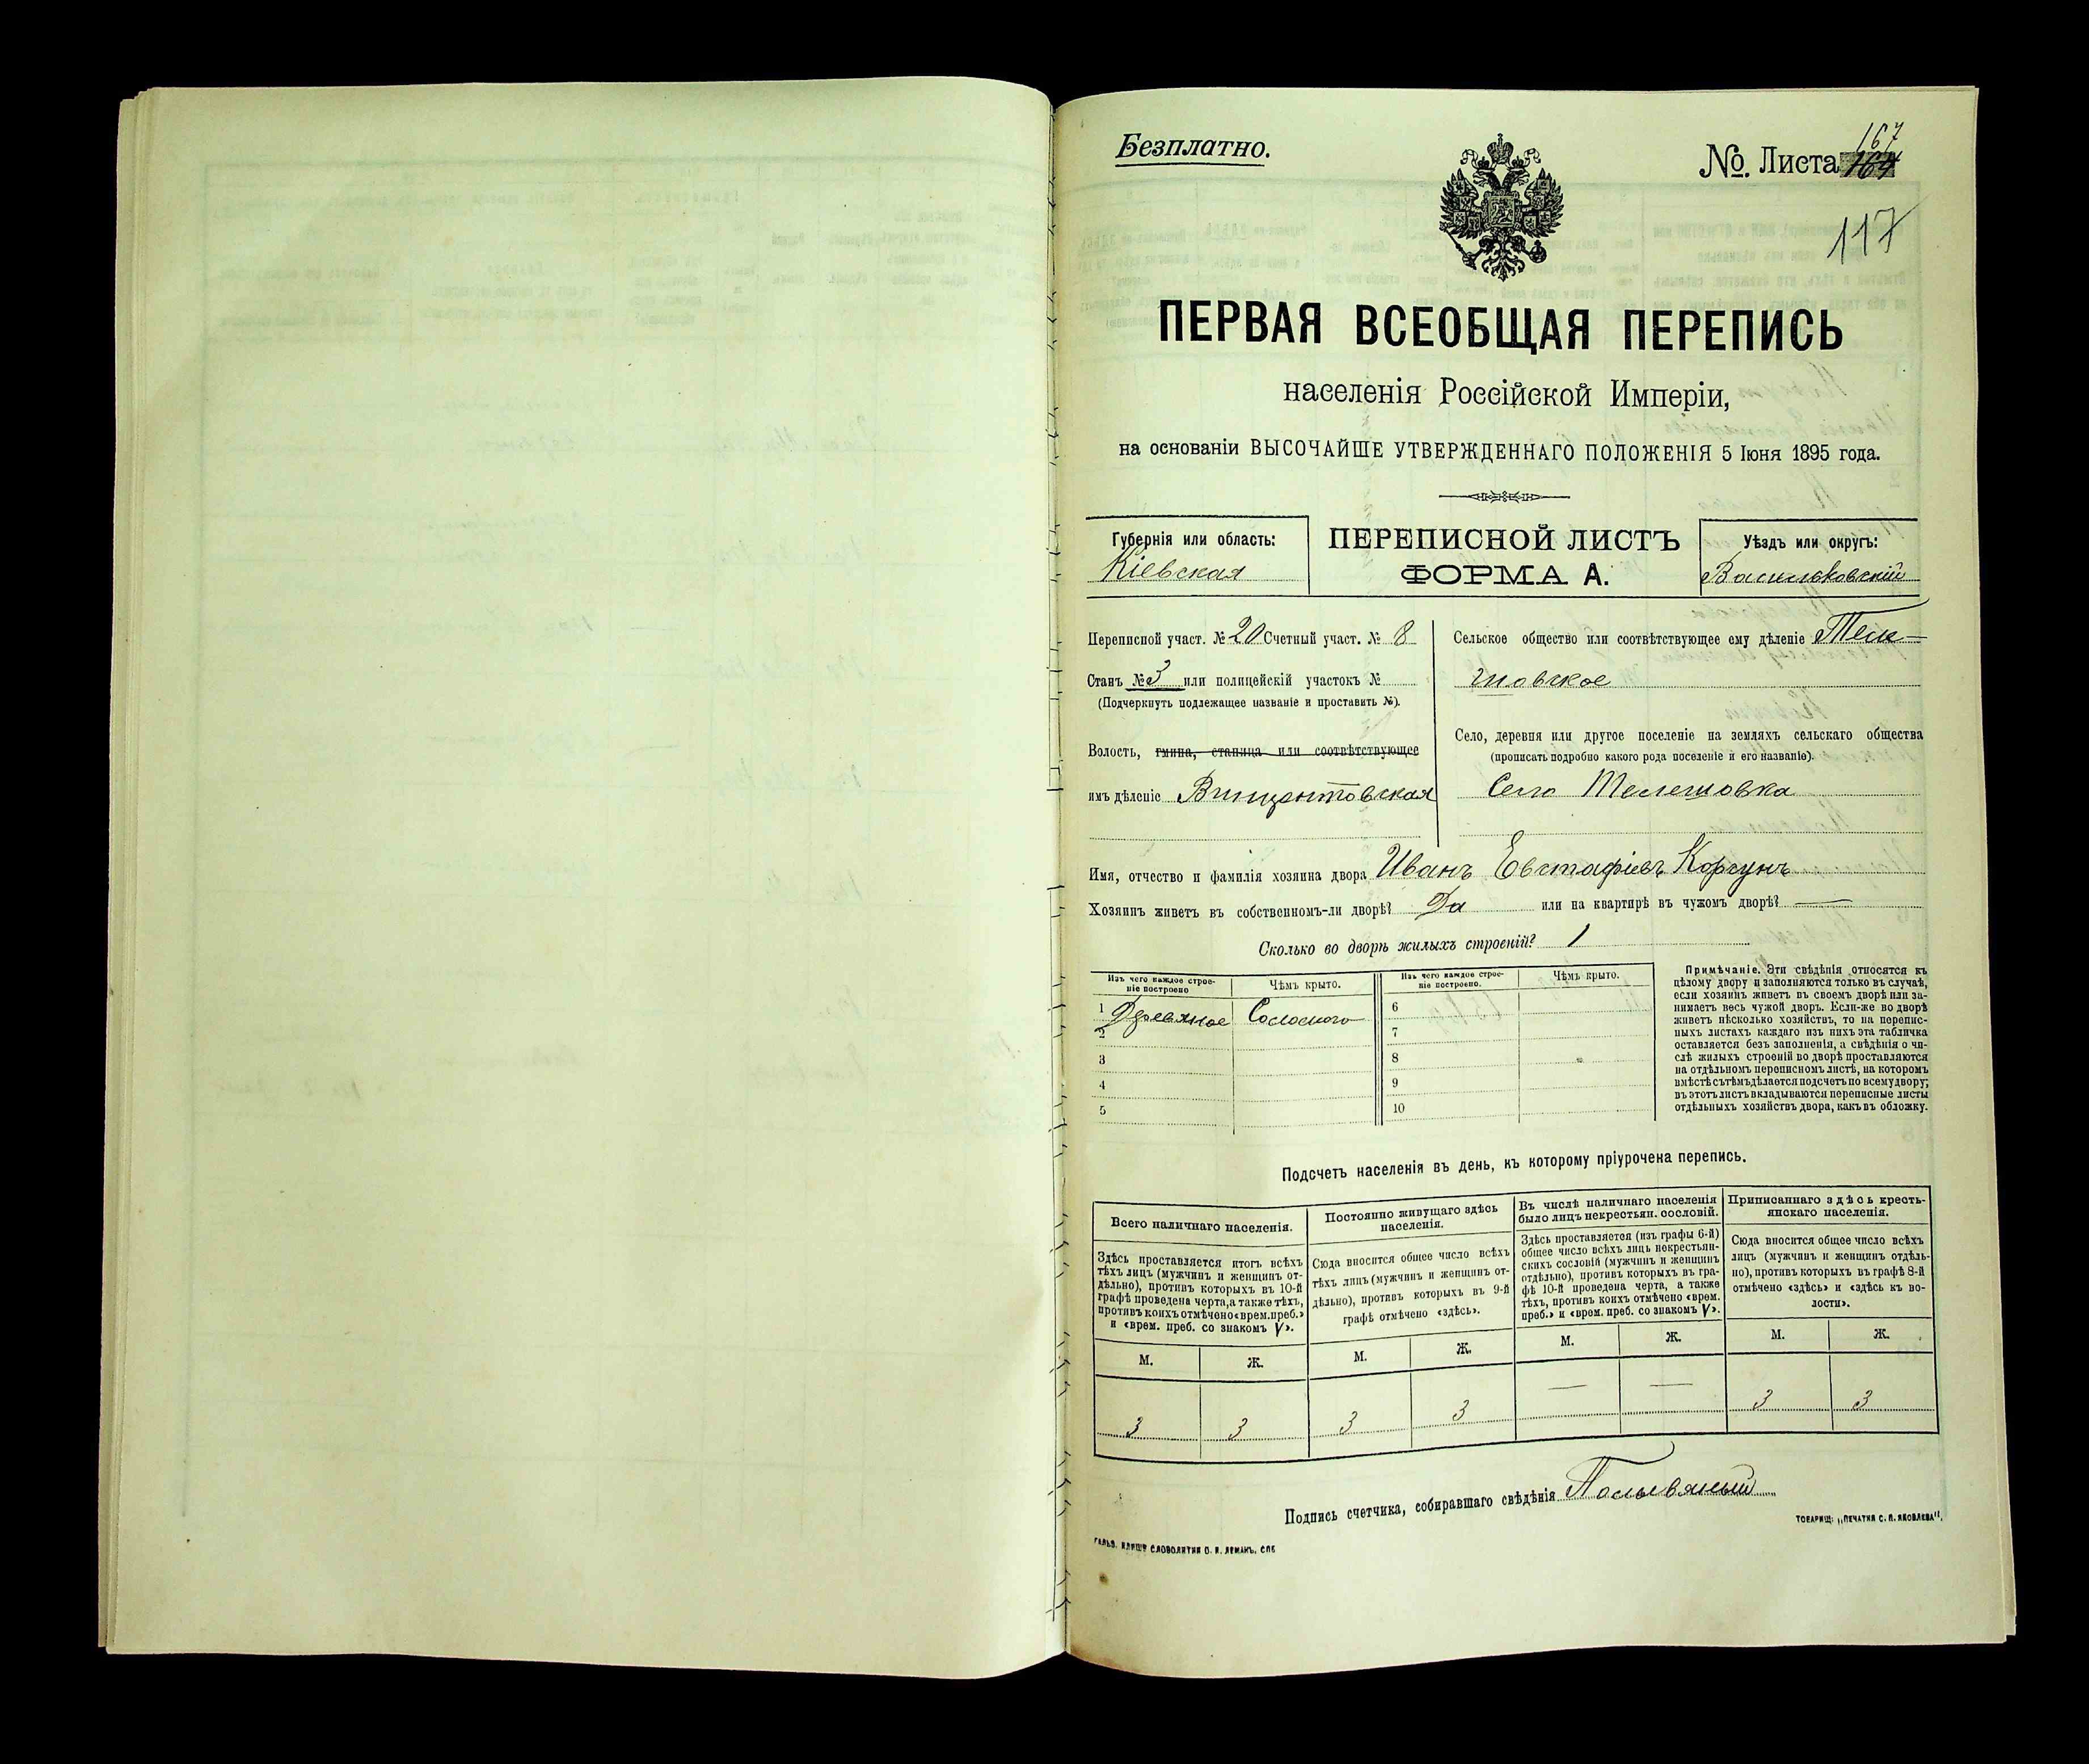 Безплатно.
№. Листа 167
164
117
ПЕРВАЯ ВСЕОБЩАЯ ПЕРЕПИСЬ
населенія Россійской Имперіи,
на основаніи ВЫСОЧАЙШЕ УТВЕРЖДЕННАГО ПОЛОЖЕНІЯ 5 Іюня 1895 года.
Губернія или область:
Кіевская
ПЕРЕПИСНОЙ ЛИСТЪ
ФОРМА А.
Уѣздъ или округъ:
Васильковскій
Переписной участ. № 20 Счетный участ. № 8
Станъ № 3 или полицейскій участокъ №
(Подчеркнуть подлежащее названіе и проставить №).
Волость, гмина, станица или соотвѣтствующее
имъ дѣленіе Винцентовская
Сельское общество или соотвѣтствующее ему дѣленіе Теле-
шовское
Село, деревня или другое поселеніе на земляхъ сельскаго общества
(прописать подробно какого рода поселеніе и его названіе).
Село Телешовка
Имя, отчество и фамилія хозяина двора Иванъ Евстафіевъ Корсунъ
Хозяинъ живетъ въ собственномъ-ли дворѣ? Да или на квартирѣ въ чужомъ дворѣ? —
Сколько во дворѣ жилыхъ строеній? 1
Изъ чего каждое строе-
ніе построено
Чѣмъ крыто.
Изъ чего каждое строе-
ніе построено.
Чѣмъ крыто.
1 Деревяное Соломою 6
2 7
3 8
4 9
5 10
Примѣчаніе. Эти свѣдѣнія относятся къ
цѣлому двору и заполняются только въ случаѣ,
если хозяинъ живетъ въ своемъ дворѣ или за-
нимаетъ весь чужой дворъ. Если-же во дворѣ
живетъ нѣсколько хозяйствъ, то на перепис-
ныхъ листахъ каждаго изъ нихъ эта табличка
оставляется безъ заполненія, а свѣдѣнія о чи-
слѣ жилыхъ строеній во дворѣ проставляются
на отдѣльномъ переписномъ листѣ, на которомъ
вмѣстѣ съ тѣмъ дѣлается подсчетъ по всему двору;
въ этотъ листъ вкладываются переписные листы
отдѣльныхъ хозяйствъ двора, какъ въ обложку.
Подсчетъ населенія въ день, къ которому пріурочена перепись.
Всего наличнаго населенія.
Здѣсь проставляется итогъ всѣхъ
тѣхъ лицъ (мужчинъ и женщинъ от-
дѣльно), противъ которыхъ въ 10-й
графѣ проведена черта, а также тѣхъ,
противъ коихъ отмѣчено «врем. преб.»
и «врем. преб. со знакомъ V».
М. Ж.
3 3
Постоянно живущаго здѣсь
населенія.
Сюда вносится общее число всѣхъ
тѣхъ лицъ (мужчинъ и женщинъ от-
дѣльно), противъ которыхъ въ 9-й
графѣ отмѣчено «здѣсь».
М. Ж.
3 3
Въ числѣ наличнаго населенія
было лицъ некрестьян. сословій.
Здѣсь проставляется (изъ графы 6-й)
общее число всѣхъ лицъ некрестьян-
скихъ сословій (мужчинъ и женщинъ
отдѣльно), противъ которыхъ въ гра-
фѣ 10-й проведена черта, а также
тѣхъ, противъ коихъ отмѣчено «врем.
преб.» и «врем. преб. со знакомъ V».
М. Ж.
— —
Приписаннаго здѣсь кресть-
янскаго населенія.
Сюда вносится общее число всѣхъ
лицъ (мужчинъ и женщинъ отдѣль-
но), противъ которыхъ въ графѣ 8-й
отмѣчено «здѣсь» и «здѣсь къ во-
лости».
М. Ж.
3 3
Подпись счетчика, собиравшаго свѣдѣнія Полывяный
СЛОВОЛИТНЯ О. И. ЛЕМАНЪ. СПБ
ТОВАРИЩ: „ПЕЧАТНЯ С. П. ЯКОВЛЕВА".